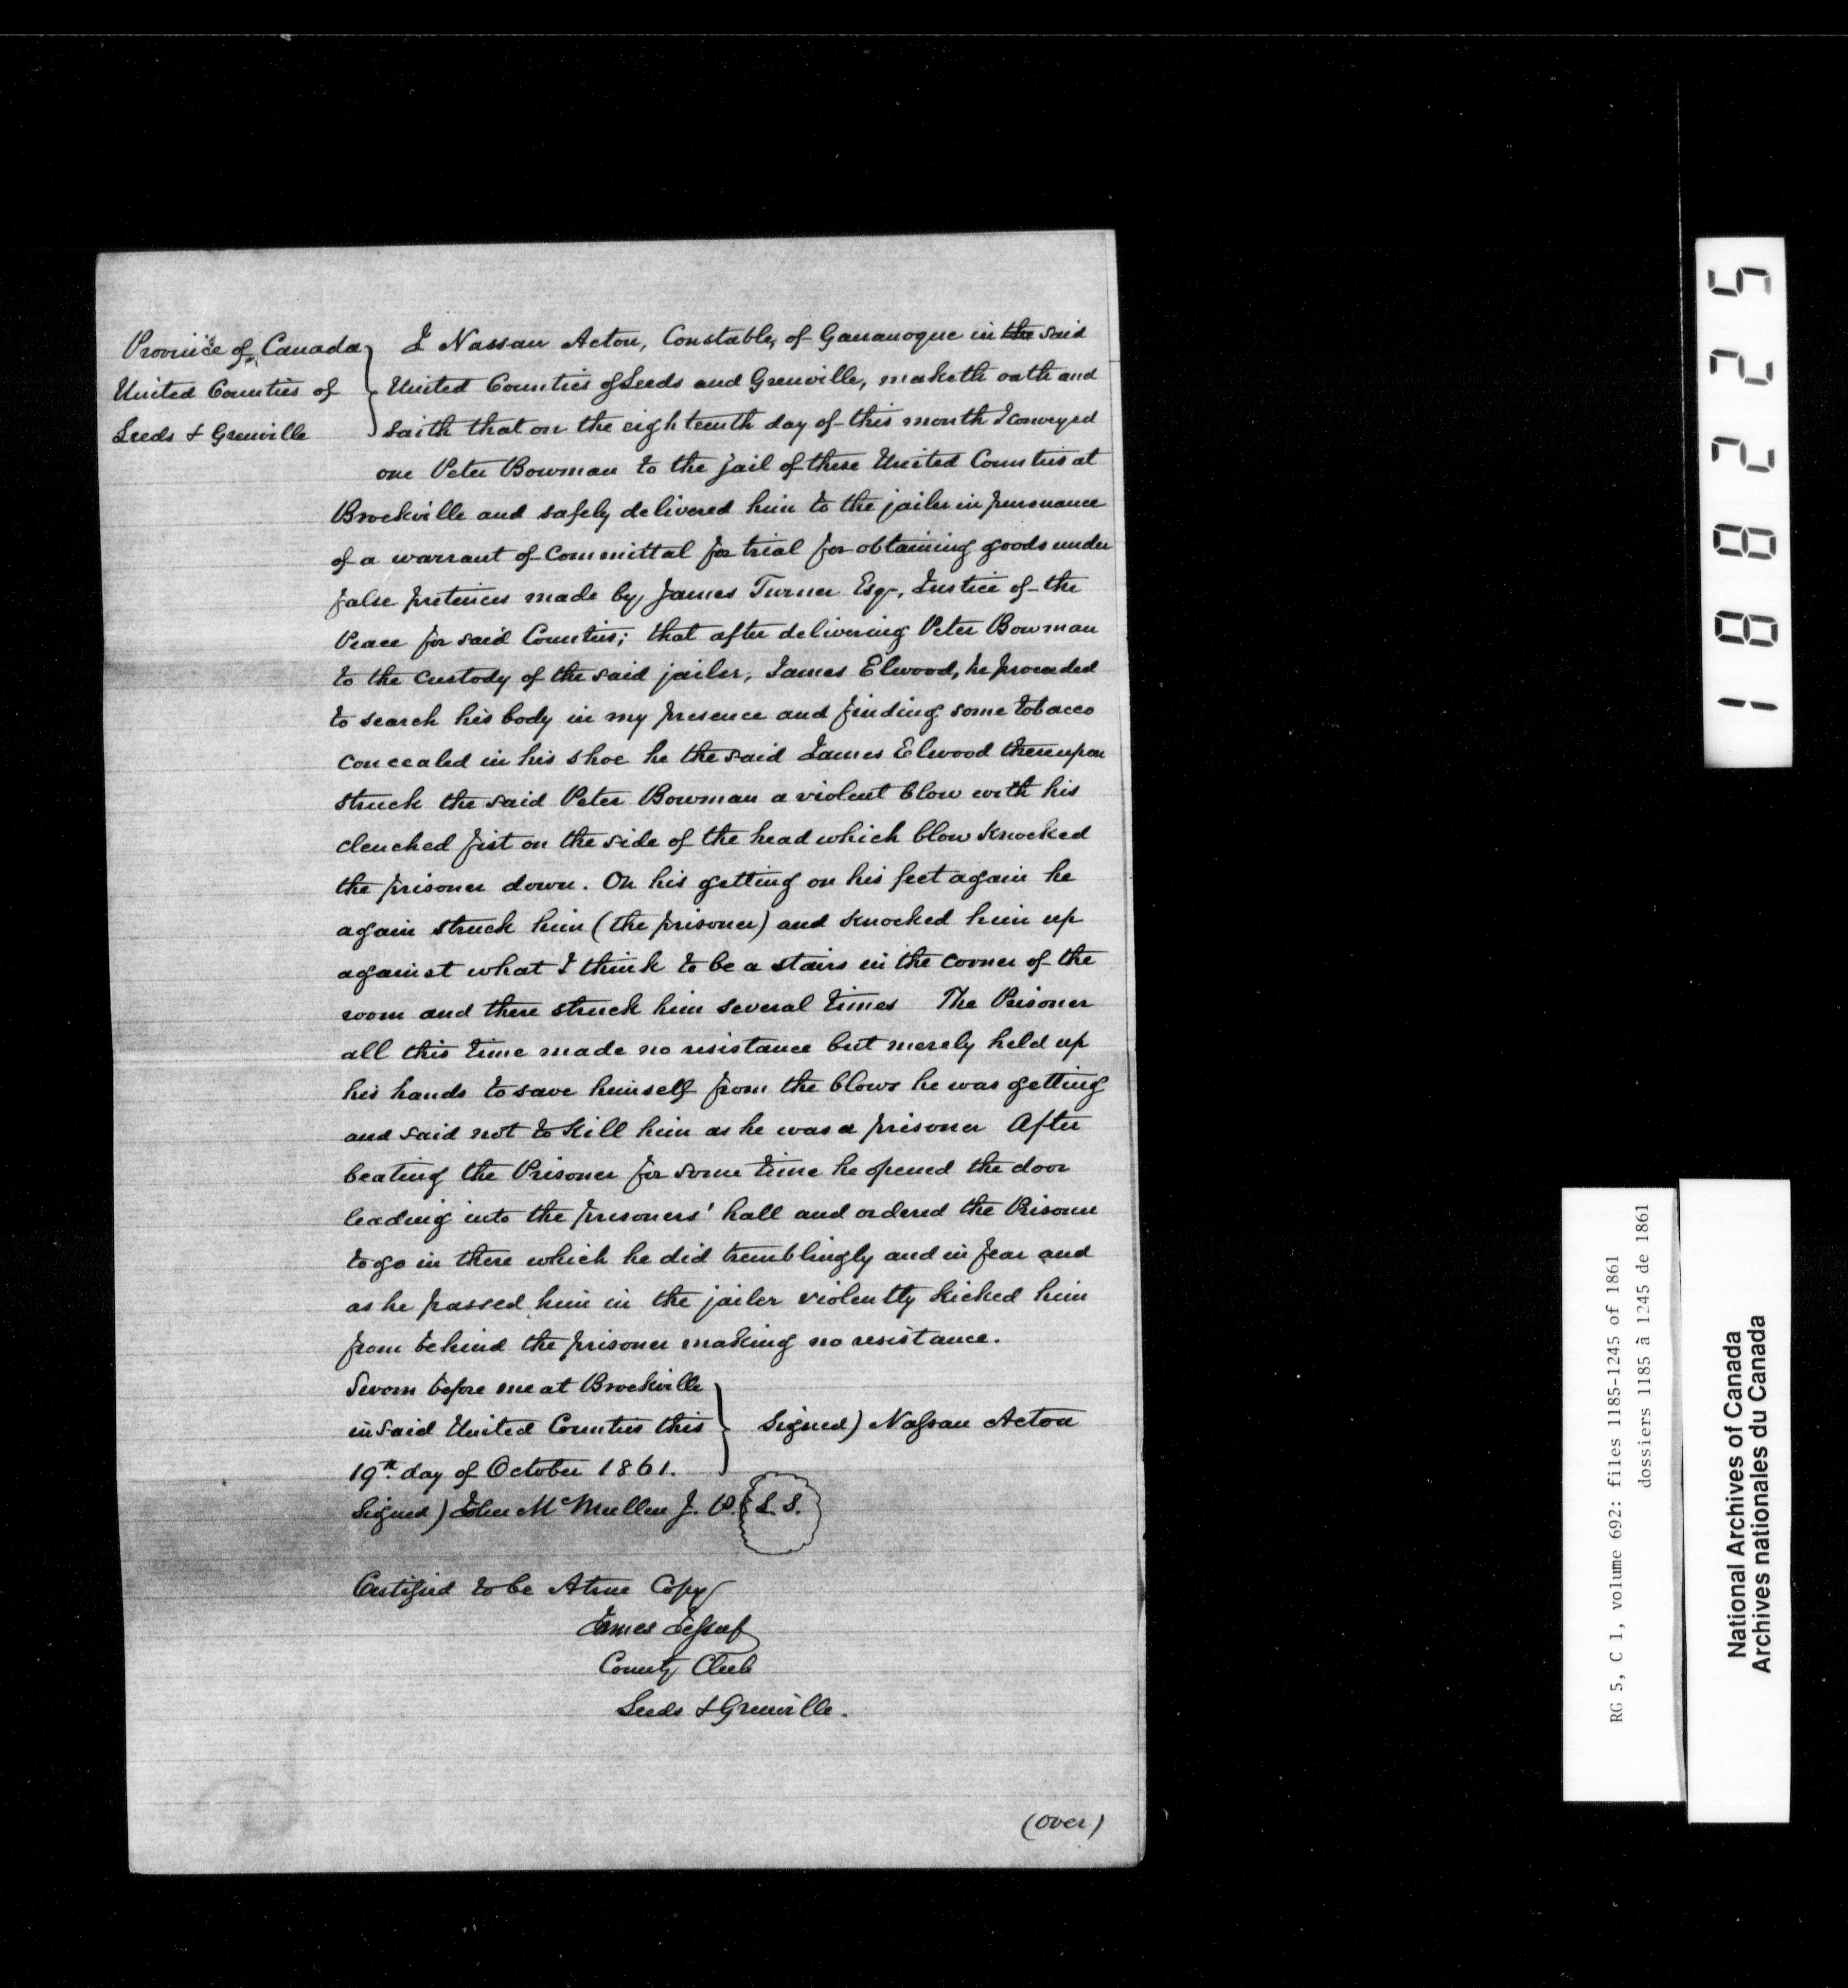 Province of Canada
United Counties of
Leeds & Grenville
I Nassau Acton, Constable, of Gananoque in the said
United Counties of Leeds and Grenville, maketh oath and
saith that on the eighteenth day of this month I conveyed
one Peter Bowman to the jail of these United Counties at
Brockville and safely delivered him to the jailer in pursuance
of a warrant of Committal for trial for obtaining goods under
false pretences made by James Turner Esqr, Justice of the
Peace for said Counties; that after delivering Peter Bowman
to the custody of the said jailer, James Elwood, he proceeded
to search his body in my presence and finding some tobacco
concealed in his shoe he the said James Elwood thereupon
struck the said Peter Bowman a violent blow with his
clenched fist on the side of the head which blow knocked
the prisoner down. On his getting on his feet again he
again struck him (the prisoner) and knocked him up
against what I think to be a stairs in the corner of the
room and there struck him several times The Prisoner
all this time made no resistance but merely held up
his hands to save himself from the blows he was getting
and said not to kill him as he was a prisoner After
beating the Prisoner for some time he opened the door
leading into the prisoners' hall and ordered the Prisoner
to go in there which he did tremblingly and in fear and
as he passed him in the jailer violently kicked him
from behind the prisoner making no resistance.
Sworn before me at Brockville
in said United Counties this
19th day of October 1861.
Signed) Nassau Acton
Signed) John McMullen J. P. L. S.
Certified to be A true Copy
James Jessup
County Clerk
Leeds & Grenville.
(over)
188225
RG 5, C 1, volume 692: files 1185-1245 of 1861
dossiers 1185 à 1245 de 1861
National Archives of Canada
Archives nationales du Canada